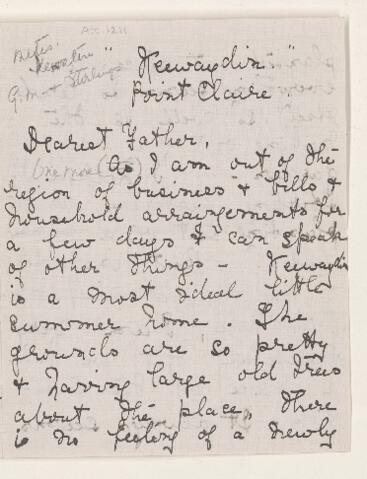 Acc. 1211
Metis
"Kewatin"
G.M. & Stirlings
"Keewaydin"
Point Claire
Dearest Father,
As I am out of the
region of business & bills &
household arrangements for
a few days I can speak
of other things – Keewaydin
is a most ideal little
summer home. The
grounds are so pretty
& having large old trees
about the place, there
is no feeling of a newly